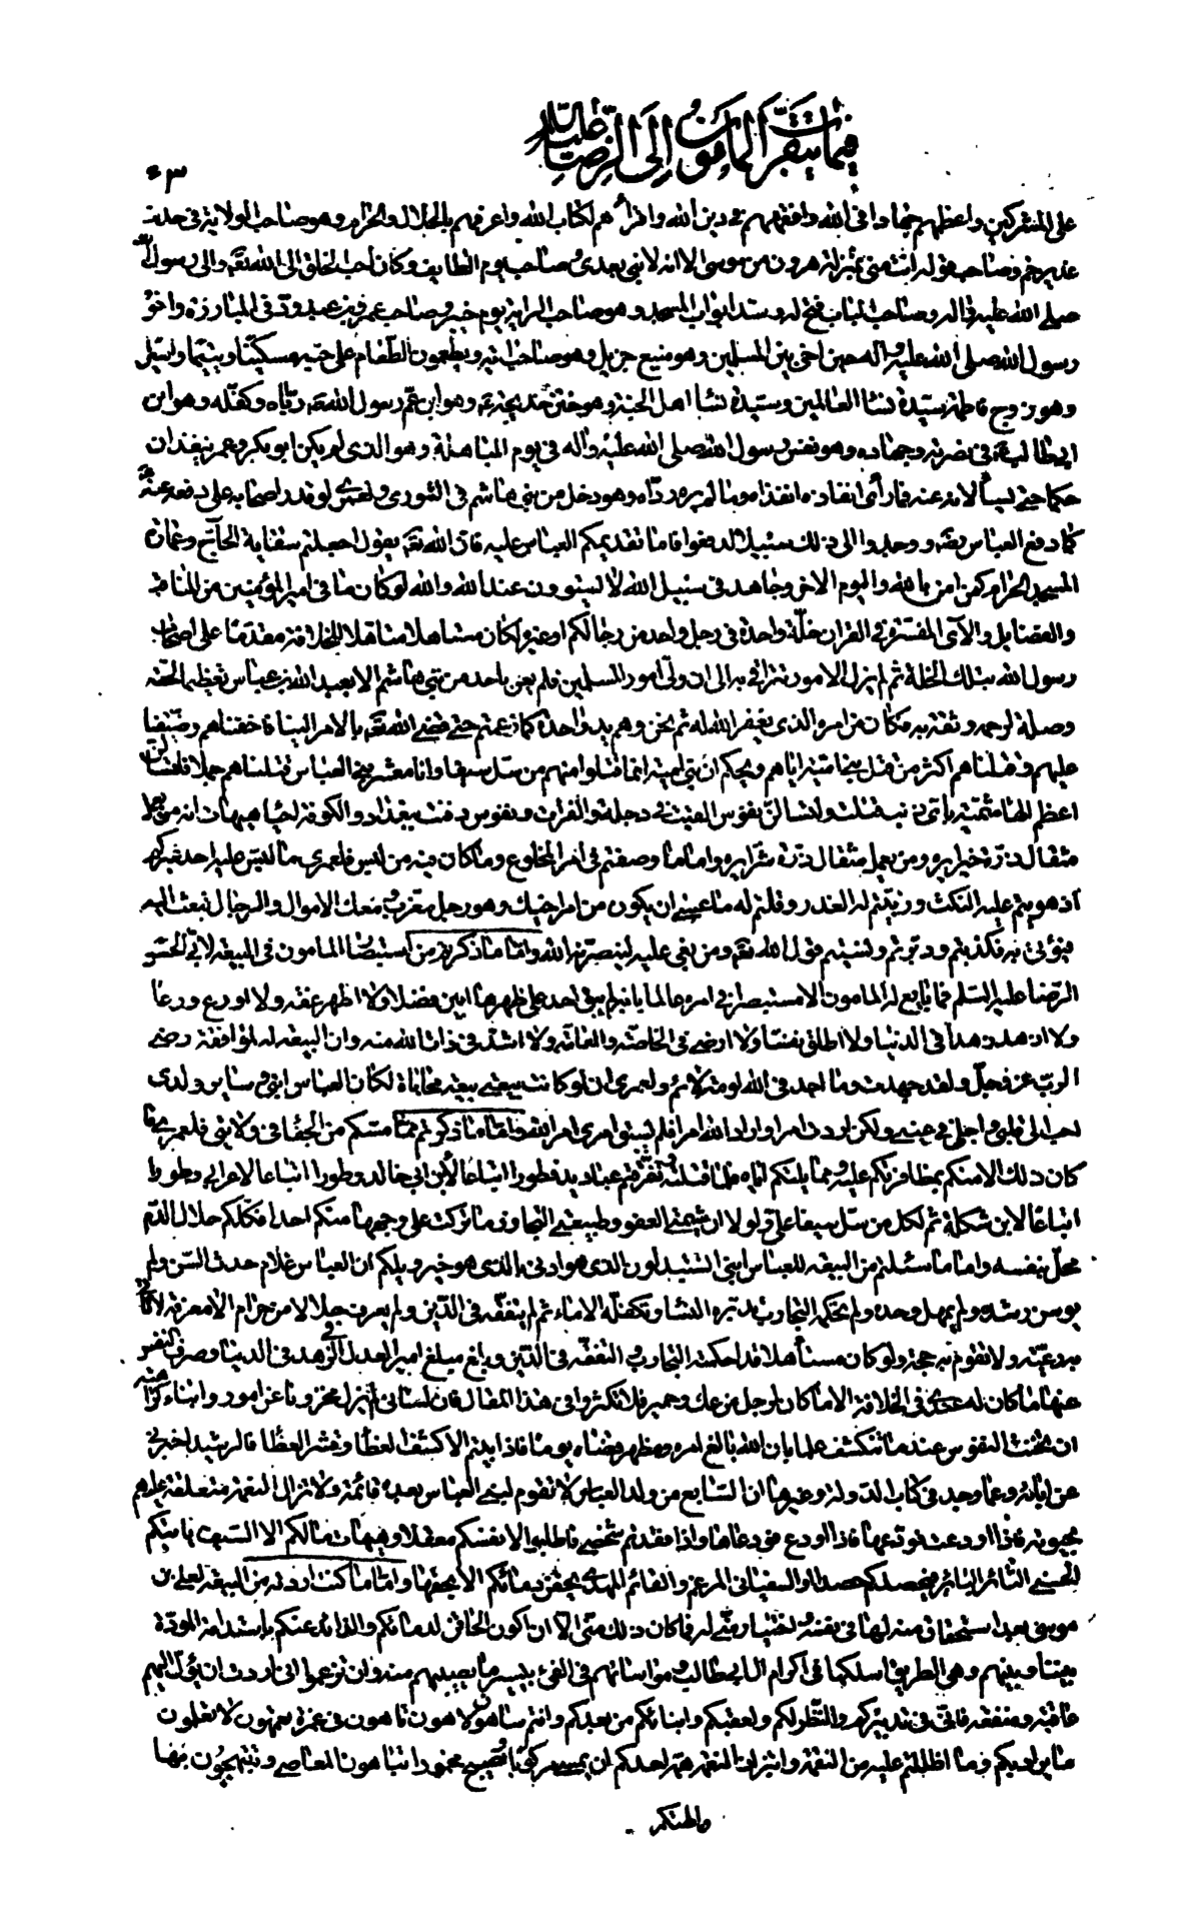 فيما يتقرب المأمون إلى الرضا عليه السلام
على المشركين واعظمهم جهادا فى الله وافقههم فى دين الله واقرأهم لكتاب الله واعرفهم بالحلال والحرام وهو صاحب الولاية فى حديث
غدير خم وصاحب قوله انت منى بمنزلة هرون من موسى الا انه لا نبى بعدى وصاحب يوم الطايف وكان احب الخلق الى الله تعالى والى رسول الله
صلى الله عليه واله وصاحب الباب فتح له وسد ابواب المسجد وهو صاحب الراية يوم خيبر وصاحب عمرو بن عبد ود فى المبارزة واخو
رسول الله صلى الله عليه واله حين اخى بين المسلمين وهو منيع جزيل وهو صاحب اية ويطعمون الطعام على حبه مسكينا ويتيما واسيرا
وهو زوج فاطمة سيدة نساء العالمين وسيدة نساء اهل الجنة وهو ختن خديجة وهو ابن عم رسول الله رباه وكفله وهو ابن
ابى طالب فى نصرته وجهاده وهو نفس رسول الله صلى الله عليه واله فى يوم المباهلة وهو الذى لم يكن ابو بكر وعمر ينفذان
حكما حتى يسألانه عنه فما رأى انفاذه انفذاه وما لم يره رداه وهو دخل من بنى هاشم فى الشورى ولعمرى لو قدر اصحابه على دفعه عنه
كما دفع العباس ووجدوا الى ذلك سبيلا لدفعوه فاما تقديمكم العباس عليه فان الله تعالى يقول اجعلتم سقاية الحاج وعمارة
المسجد الحرام كمن امن بالله واليوم الاخر وجاهد فى سبيل الله لا يستوون عند الله والله لو كان ما فى امير المؤمنين من المناقب
والفضايل والاى المفسرة فى القران خلة واحدة فى رجل واحد من رجالكم او غيره لكان مستاهلا متاهلا للخلافة مقدما على اصحاب
رسول الله بتلك الخلة ثم لم يزل الامور تتراقى به الى ان ولى امور المسلمين فلم يعن باحد من بنى هاشم الا بعبد الله بن عباس تعظيما لحقه
وصلة لرحمه وثقة به فكان من امره الذى يغفر الله له ثم نحن وهم يد واحدة كما زعمتم حتى قضى الله تعالى بالامر الينا فاخفناهم وضيقنا
عليهم وقتلناهم اكثر من قتل بنى امية اياهم ويحكم ان بنى امية انما قتلوا منهم من سل سيفا وانا معشر بنى العباس قتلناهم جملا فلتسألن
اعظم الهاشمية باى ذنب قتلت ولتسألن نفوس القيت فى دجلة والفرات ونفوس دفنت ببغداد والكوفة احياء هيهات انه من يعمل
مثقال ذرة خيرا يره ومن يعمل مثقال ذرة شرا يره واما ما وصفتم فى امر المخلوع وما كان فيه من لبس فلعمرى ما لبس عليه احد غيركم
اذ هويتم عليه النكث وزينتم له الغدر وقلتم له ما عسى ان يكون من امر اخيك وهو رجل مغرب ومعك الاموال والرجال نبعث اليه
فيؤتى به فكذبتم ودبرتم ونسيتم قول الله تعالى ومن بغى عليه لينصرنه الله واما ما ذكرتم من استبصار المامون فى البيعة لابى الحسن
الرضا عليه السلم فما بايع له المامون الا مستبصرا فى امره عالما بانه لم يبق احد على ظهرها ابين فضلا ولا اظهر عفة ولا اورع ورعا
ولا ازهد زهدا فى الدنيا ولا اطلق نفسا ولا ارضى فى الخاصة والعامة ولا اشد فى ذات الله منه وان البيعة له لموافقة رضى
الرب عز وجل ولقد جهدت وما اجد فى الله لومة لائم ولعمرى ان لو كانت بيعتى بيعة محاباة لكان العباس ابنى وساير ولدى
احب الى قلبى واجلى فى عينى ولكن اردت امرا واراد الله امرا فلم يسبق امرى امر الله واما ما ذكرتم مما مسكم من الجفاء فى ولايتى فلعمرى ما
كان ذلك الا منكم بمظافرتكم عليه ومما يلتكم اياه فلما قتلته وتفرقتم عباديد فطورا اتباعا لابن ابى خالد وطورا اتباعا لاعرابى وطورا
اتباعا لابن شكلة ثم لكل من سل سيفا على ولولا ان شيمتى العفو وطبيعتى التجاوز ما تركت على وجهها منكم احدا فكلكم حلال الدم
محل بنفسه واما ما سئلتم من البيعة للعباس ابنى اتستبدلون الذى هو ادنى بالذى هو خير ويلكم ان العباس غلام حدث السن ولم
يونس رشده ولم يمهل وحده ولم تحكمه التجارب تدبره النساء وتكفله الاماء ثم لم يتفقه فى الدين ولم يعرف حلالا من حرام الا معرفة لا تاتى
به رعية ولا تقوم به حجة ولو كان مستأهلا قد احكمته التجارب والتفقه فى الدين وبلغ مبلغ امير العدل فى الزهد فى الدنيا وصرف النفس
عنها ما كان له عندى فى الخلافة الا ما كان لرجل من عك وحمير فلا تكثروا فى هذا المقال فان لسانى لم يزل مخزونا عن امور وانباء كراهية
ان تخنث النفوس عندما تنكشف علما بان الله بالغ امره ومظهر قضاه يوما فاذا ابيتم الا كشف الغطاء وقشر العظاء فالرشيد اخبرنى
عن ابائه وعما وجد فى كتاب الدولة وغيرها ان السابع من ولد العباس لا تقوم لبنى العباس بعده قائمة ولا تزال النعمة متعلقة عليهم
بحيوته فاذا اودعت فودعها فاذا اودع فودعاها واذا فقدتم شخصى فاطلبوا لانفسكم معقلا وهيهات مالكم الا السيف ياتيكم
الحسنى الثائر البائر فيحصدكم حصدا او السفيانى المرغم والقائم المهدى يحقن دمائكم الا بحقها واما ما كنت اردته من البيعة لعلى بن
موسى بعد استحقاق منه لها فى نفسه واختيار منى له فما كان ذلك منى الا ان اكون الحاقن لدمائكم والذائد عنكم باستدامة المودة
بيننا وبينهم وهى الطريق اسلكها فى اكرام ال ابى طالب ومواساتهم فى الفئ بيسير ما يصيبهم منه وان تزعموا انى اردت ان يؤل اليهم
عاقبة ومنفعة فانى فى تدبيركم والنظر لكم ولعقبكم وابنائكم من بعدكم وانتم ساهون لاهون تاهون فى غمرة تعمهون لا تعلمون
ما يراد بكم وما اظللتم عليه من النقمة وابتزاز النعمة همة احدكم ان يمسى مركوبا ويصبح مخمورا تباهون بالمعاصى وتبتهجون بها
والهتكم